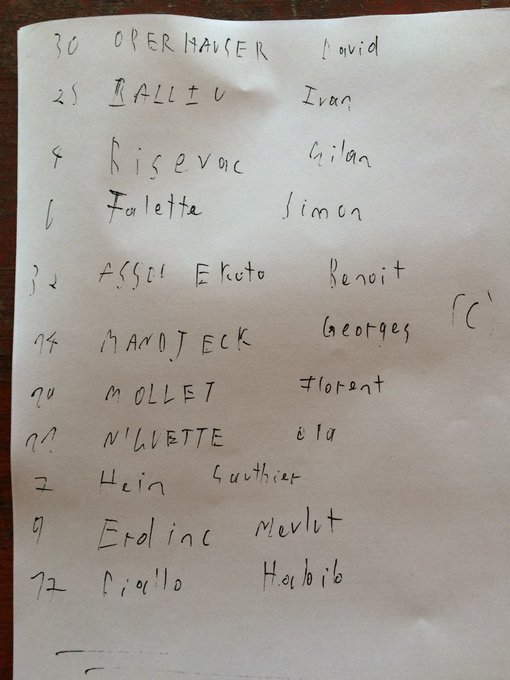 30 OBERHAUSER David
25 BALLIU Ivan
4 Bisevac Milan
6 Falette Simon
32 ASSOU EKOTO Benoit
14 MANDJECK Georges (C)
20 MOLLET Florent
N'GUETTE Ola
7 Hein Gauthier
9 Erdinc Mevlut
17 Diallo Habib